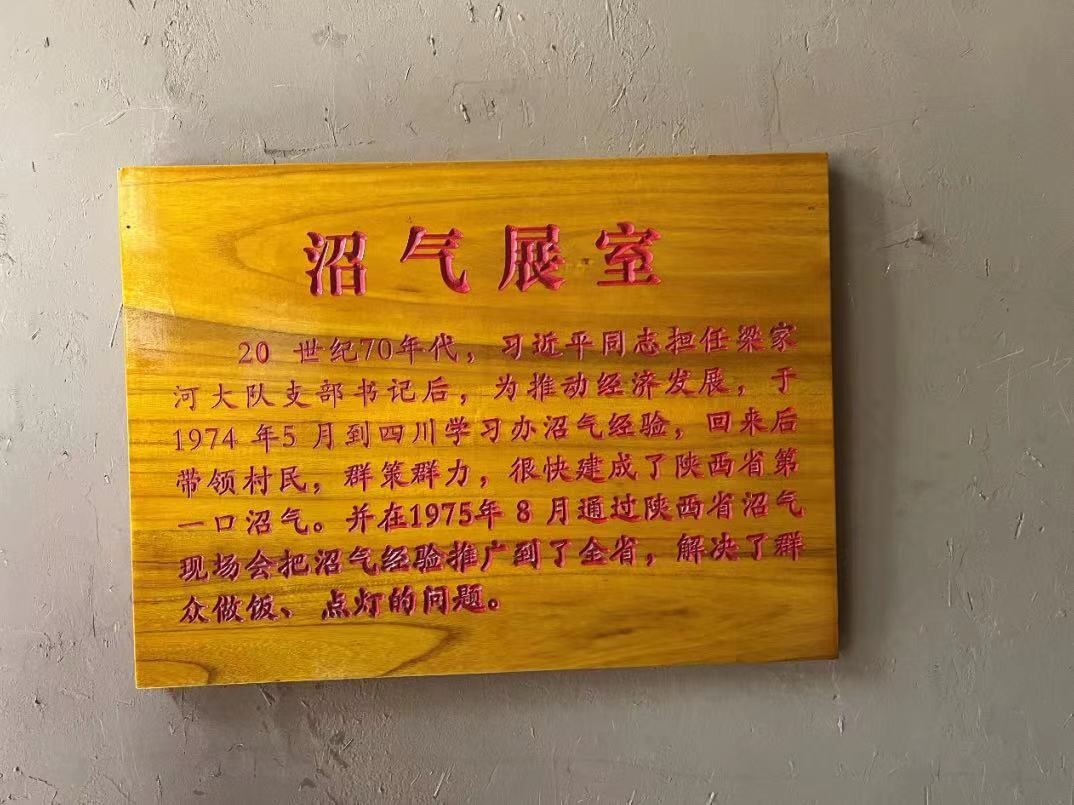 沼气展室
20 世纪70年代，习近平同志担任梁家
河大队支部书记后，为推动经济发展，于
1974 年5 月到四川学习办沼气经验，回来后
带领村民，群策群力，很快建成了陕西省第
一口沼气。并在1975年 8 月通过陕西省沼气
现场会把沼气经验推广到了全省，解决了群
众做饭、点灯的问题。